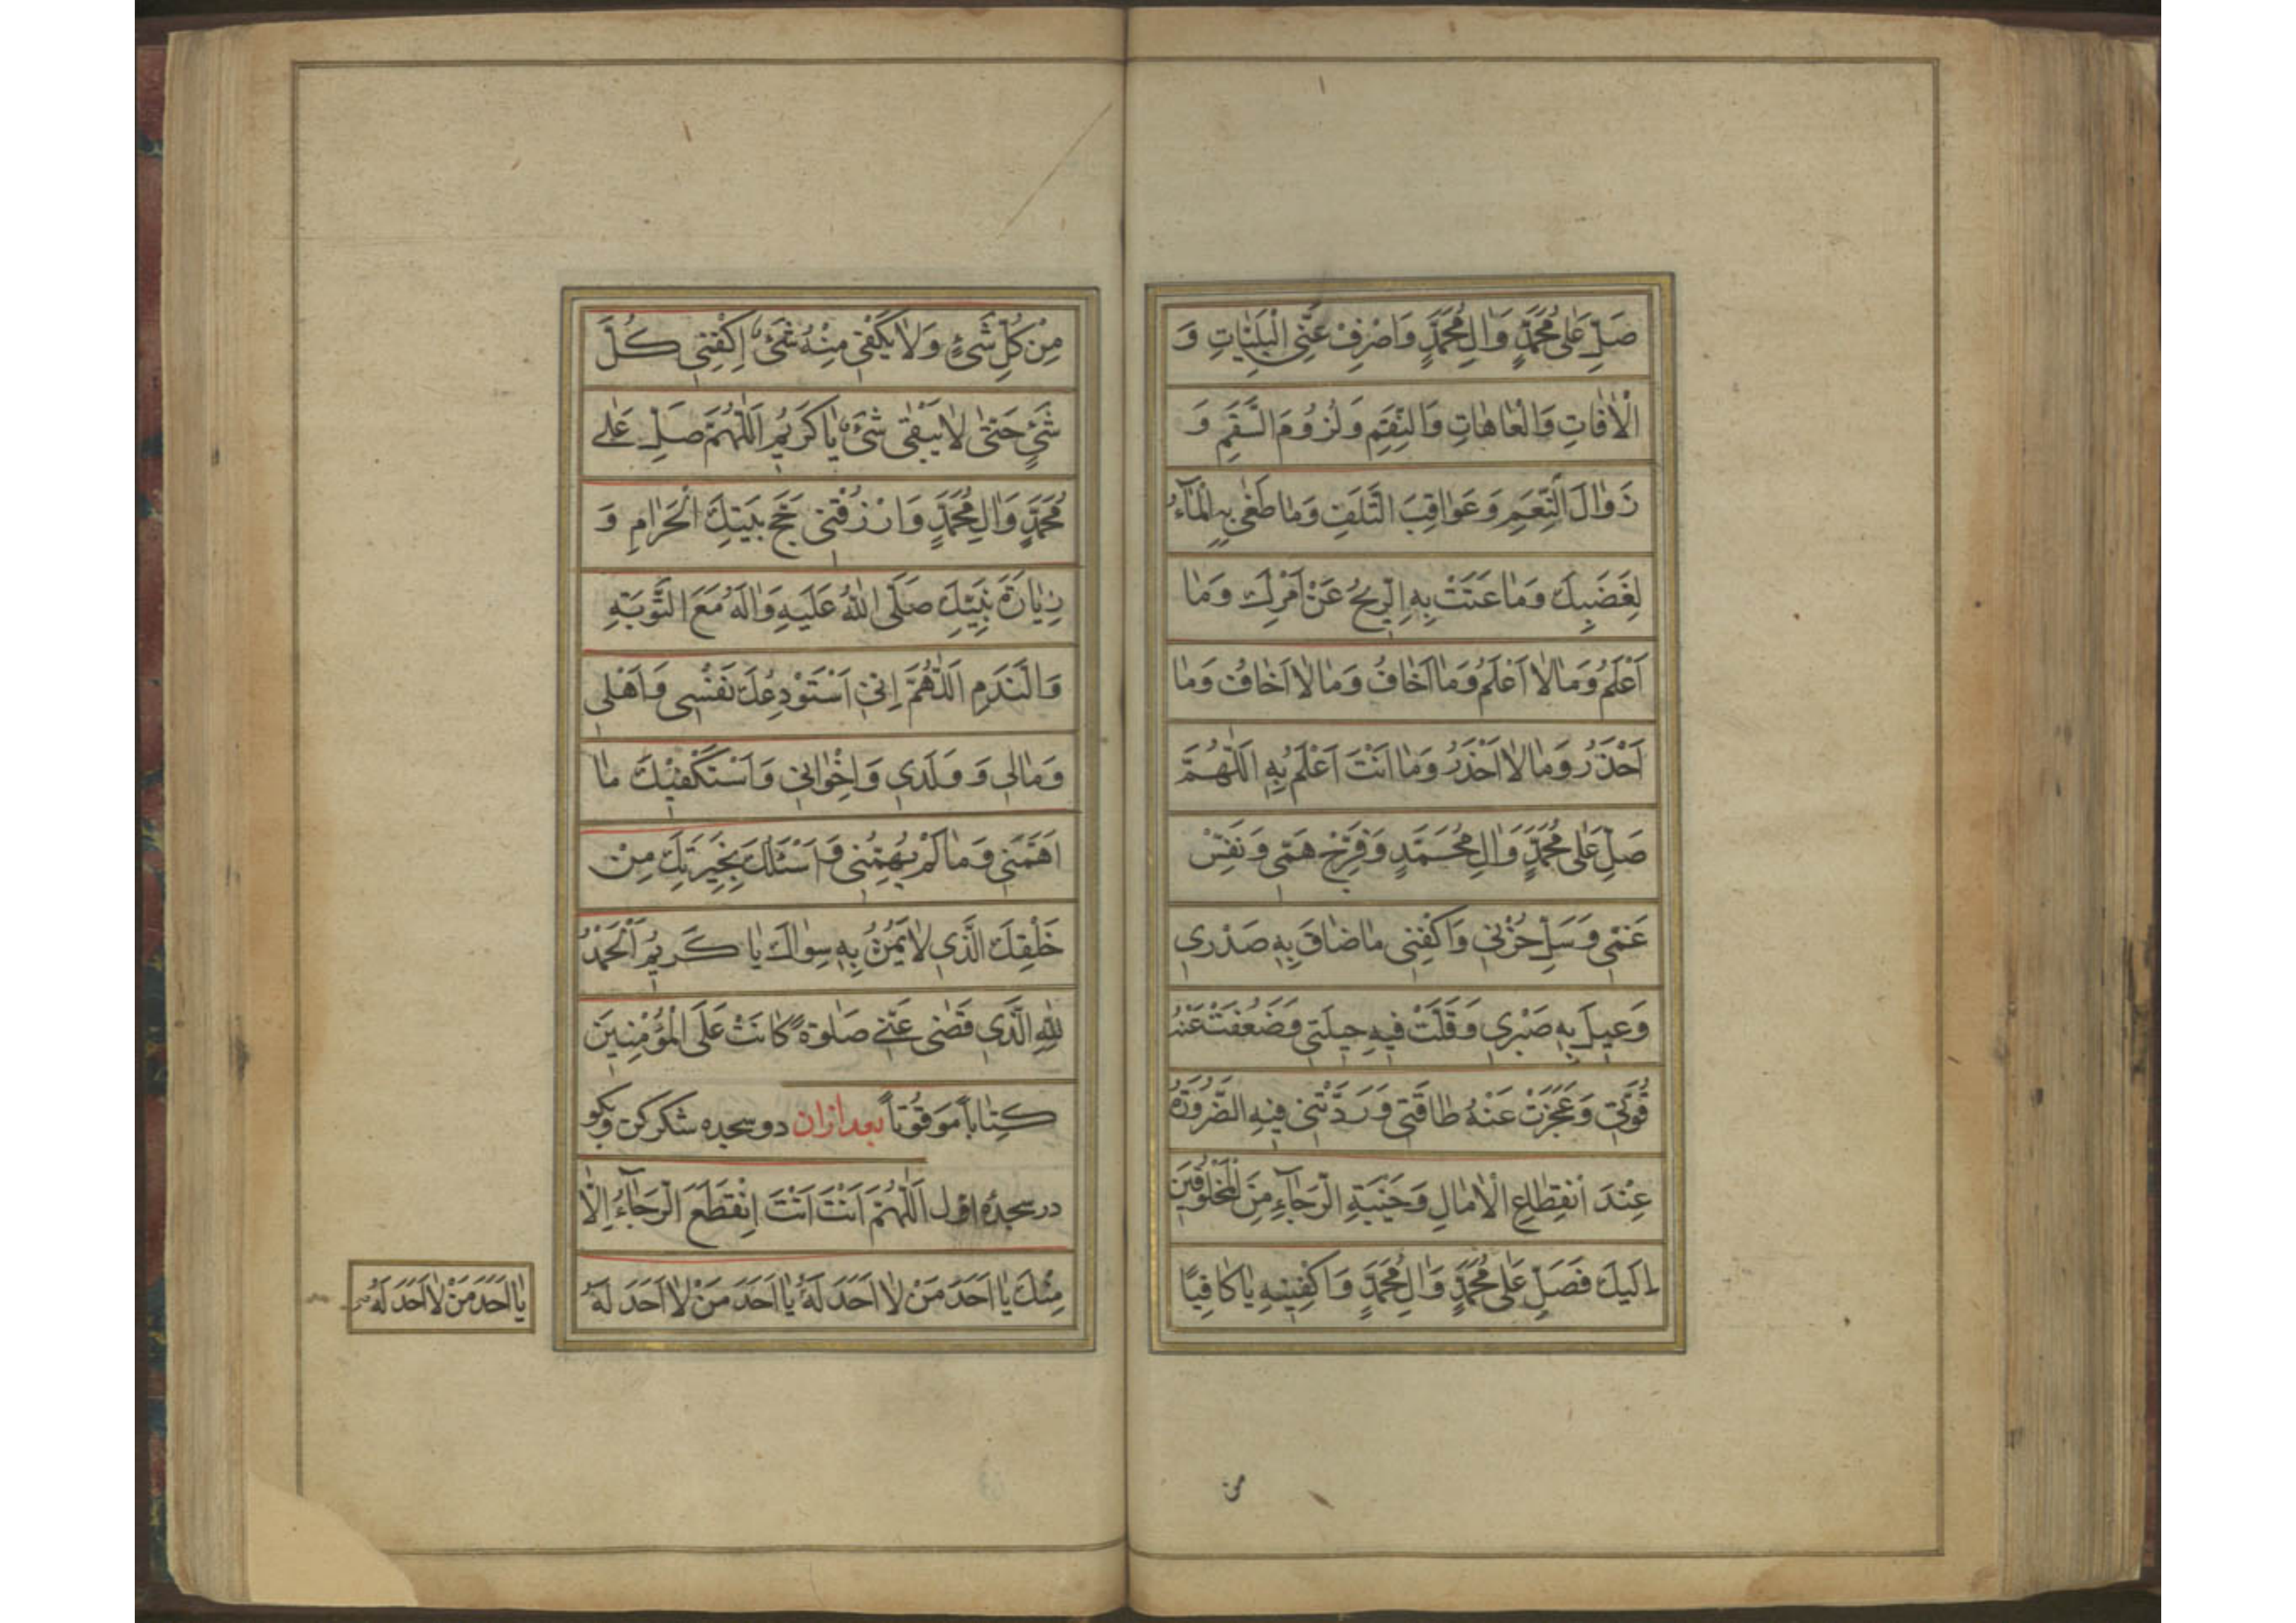 صَلِّ عَلٰى مُحَمَّدٍ وَاٰلِ مُحَمَّدٍ وَاصْرِفْ عَنِّى الْبَلِيّٰاتِ وَ
الْاٰفٰاتِ وَالْعٰاهٰاتِ وَالنِّقَمِ وَلُزُومَ السَّقَمِ وَ
زَوٰالَ النِّعَمِ وَعَوٰاقِبَ التَّلَفِ وَمٰا طَغٰى بِهِ الْمٰآءُ
لِغَضَبِكَ وَمٰا عَتَتْ بِهِ الرّيحُ عَنْ اَمْرِكَ وَمٰا
اَعْلَمُ وَمٰا لٰا اَعْلَمُ وَمٰا اَخٰافُ وَمٰا لٰا اَخٰافُ وَمٰا
اَحْذَرُ وَمٰا لٰا اَحْذَرُ وَمٰا اَنْتَ اَعْلَمُ بِهِ اَللّٰهُمَّ
صَلِّ عَلٰى مُحَمَّدٍ وَاٰلِ مُحَمَّدٍ وَفَرِّجْ هَمّى وَنَفِّسْ
غَمّى وَسَلِّ حُزْنى وَاكْفِنى مٰا ضٰاقَ بِهِ صَدْرى
وَعيلَ بِهِ صَبْرى وَقَلَّتْ فيهِ حيلَتى وَضَعُفَتْ عَنْهُ
قُوَّتى وَعَجَزَتْ عَنْهُ طٰاقَتى وَرَدَّتْنى فيهِ الضَّرُورَةُ
عِنْدَ انْقِطٰاعِ الْاٰمٰالِ وَخَيْبَةِ الرَّجٰآءِ مِنَ الْمَخْلُوقينَ
اِلَيْكَ فَصَلِّ عَلٰى مُحَمَّدٍ وَاٰلِ مُحَمَّدٍ وَاكْفِنيهِ يٰا كٰافِيًا
من
مِنْ كُلِّ شَىْءٍ وَلٰا يَكْفى مِنْهُ شَىْءٌ اِكْفِنى كُلَّ
شَىْءٍ حَتّٰى لٰا يَبْقٰى شَىْءٌ يٰا كَريمُ اَللّٰهُمَّ صَلِّ عَلٰى
مُحَمَّدٍ وَاٰلِ مُحَمَّدٍ وَارْزُقْنى حَجَّ بَيْتِكَ الْحَرٰامِ وَ
زِيٰارَةَ نَبِيِّكَ صَلَّى اللّٰهُ عَلَيْهِ وَاٰلِهُ مَعَ التَّوْبَةِ
وَالنَّدَمِ اَللّٰهُمَّ اِنّى اَسْتَوْدِعُكَ نَفْسى وَاَهْلى
وَمٰالى وَ وَلَدى وَاِخْوٰانى وَاَسْتَكْفيكَ مٰا
اَهَمَّنى وَمٰا لَمْ يُهِمَّنى وَاَسْئَلُكَ بِخِيَرَتِكَ مِنْ
خَلْقِكَ الَّذى لٰا يَمُنُّ بِهِ سِوٰاكَ يٰا كَريمُ اَلْحَمْدُ
لِلّٰهِ الَّذى قَضٰى عَنّى صَلٰوةً كٰانَتْ عَلَى الْمُؤْمِنينَ
كِتٰاباً مَوْقُوتاً بعد ازان دو سجده شكر كن وبكو
در سجدهٔ اوّل اَللّٰهُمَّ اَنْتَ اَنْتَ اِنْقَطَعَ الرَّجٰآءُ اِلّٰا
مِنْكَ يٰا اَحَدَ مَنْ لٰا اَحَدَ لَهُ يٰا اَحَدَ مَنْ لٰا اَحَدَ لَهُ
يٰا اَحَدَ مَنْ لٰا اَحَدَ لَهُ